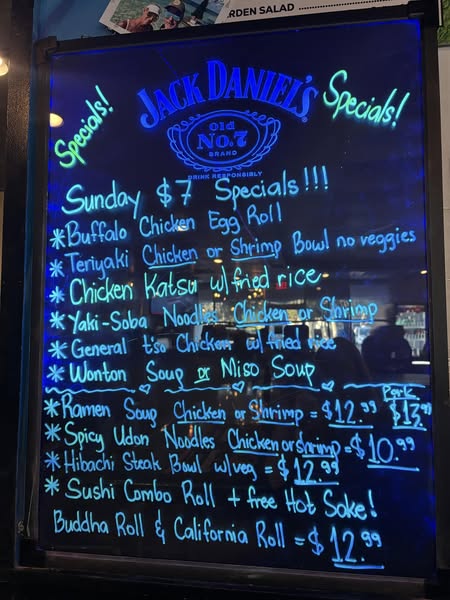 RDEN SALAD
Specials!
JACK DANIEL'S
Specials!
Old
No.7
BRAND
DRINK RESPONSIBLY
Sunday $7 Specials!!!
*Buffalo Chicken Egg Roll
*Teriyaki Chicken or Shrimp Bowl no veggies
*Chicken Katsu w/ fried rice
*Yaki-Soba Noodles Chicken or Shrimp
*General t'so Chicken w/ fried rice
*Wonton Soup or Miso Soup
Pork
*Ramen Soup Chicken or Shrimp = $12.99 $13.99
*Spicy Udon Noodles Chicken or shrimp = $10.99
*Hibachi Steak Bowl w/veg = $12.99
*Sushi Combo Roll + free Hot Sake!
Buddha Roll & California Roll = $12.99